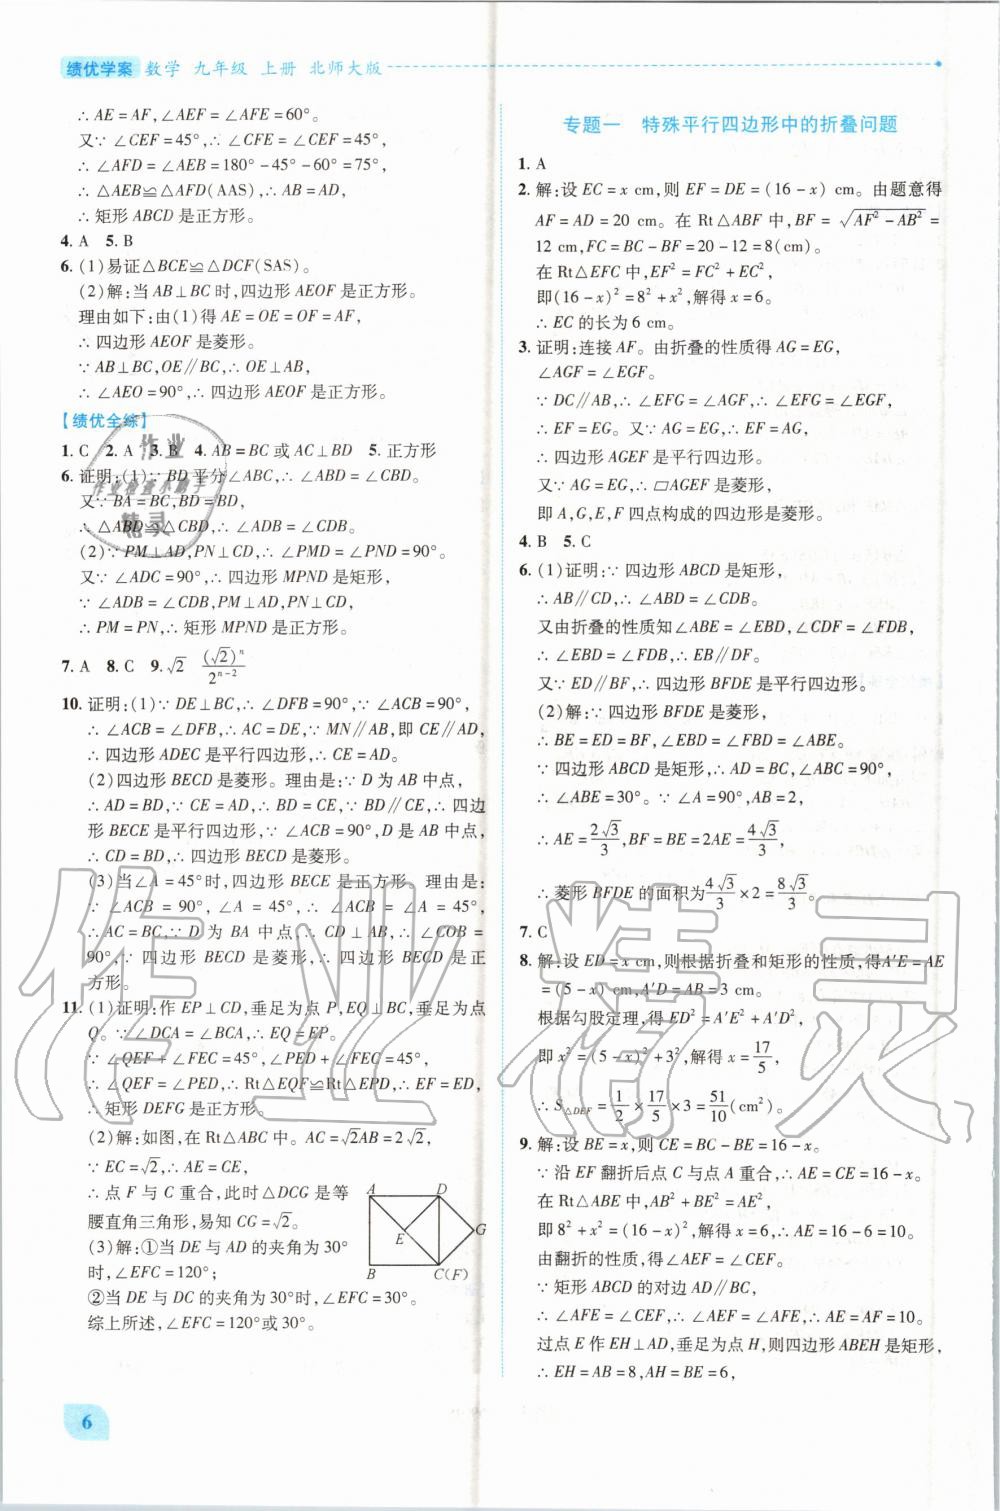 绩优学案 数学 九年级 上册 北师大版
∴AE=AF,∠AEF=∠AFE=60°。
又∵∠CEF=45°,∴∠CFE=∠CEF=45°,
∴∠AFD=∠AEB=180°-45°-60°=75°,
∴△AEB≌△AFD(AAS),∴AB=AD,
∴矩形ABCD是正方形。
4. A 5. B
6. (1)易证△BCE≌△DCF(SAS)。
(2)解:当AB⊥BC时,四边形AEOF是正方形。
理由如下:由(1)得AE=OE=OF=AF,
∴四边形AEOF是菱形。
∵AB⊥BC,OE∥BC,∴OE⊥AB,
∴∠AEO=90°,∴四边形AEOF是正方形。
【绩优全练】
1. C 2. A 3. B 4. AB=BC或AC⊥BD 5. 正方形
6. 证明:(1)∵BD平分∠ABC,∴∠ABD=∠CBD。
又∵BA=BC,BD=BD,
∴△ABD≌△CBD,∴∠ADB=∠CDB。
(2)∵PM⊥AD,PN⊥CD,∴∠PMD=∠PND=90°。
又∵∠ADC=90°,∴四边形MPND是矩形,
∵∠ADB=∠CDB,PM⊥AD,PN⊥CD,
∴PM=PN,∴矩形MPND是正方形。
7. A 8. C 9. √2 (√2)ⁿ/2ⁿ⁻²
10. 证明:(1)∵DE⊥BC,∴∠DFB=90°,∵∠ACB=90°,
∴∠ACB=∠DFB,∴AC=DE,∵MN∥AB,即CE∥AD,
∴四边形ADEC是平行四边形,∴CE=AD。
(2)四边形BECD是菱形。理由是:∵D为AB中点,
∴AD=BD,∵CE=AD,∴BD=CE,∵BD∥CE,∴四边
形BECE是平行四边形,∵∠ACB=90°,D是AB中点,
∴CD=BD,∴四边形BECD是菱形。
(3)当∠A=45°时,四边形BECE是正方形 理由是:
∵∠ACB=90°,∠A=45°,∴∠ABC=∠A=45°,
∴AC=BC,∵D为BA中点,∴CD⊥AB,∴∠COB=
90°,∵四边形BECD是菱形,∴四边形BECD是正
方形。
11. (1)证明:作EP⊥CD,垂足为点P,EQ⊥BC,垂足为点
Q。∵∠DCA=∠BCA,∴EQ=EP。
∵∠QEF+∠FEC=45°,∠PED+∠FEC=45°,
∴∠QEF=∠PED,∴Rt△EQF≌Rt△EPD,∴EF=ED,
∴矩形DEFG是正方形。
(2)解:如图,在Rt△ABC中。AC=√2AB=2√2,
∵EC=√2,∴AE=CE,
∴点F与C重合,此时△DCG是等
腰直角三角形,易知CG=√2。
(3)解:①当DE与AD的夹角为30°
时,∠EFC=120°;
②当DE与DC的夹角为30°时,∠EFC=30°。
综上所述,∠EFC=120°或30°。
A D
E G
B C(F)
6
专题一 特殊平行四边形中的折叠问题
1. A
2. 解:设EC=x cm,则EF=DE=(16-x) cm。由题意得
AF=AD=20 cm。在Rt△ABF中,BF=√(AF²-AB²)=
12 cm,FC=BC-BF=20-12=8(cm)。
在Rt△EFC中,EF²=FC²+EC²,
即(16-x)²=8²+x²,解得x=6。
∴EC的长为6 cm。
3. 证明:连接AF。由折叠的性质得AG=EG,
∠AGF=∠EGF。
∵DC∥AB,∴∠EFG=∠AGF,∴∠EFG=∠EGF,
∴EF=EG。又∵AG=EG,∴EF=AG,
∴四边形AGEF是平行四边形。
又∵AG=EG,∴▱AGEF是菱形,
即A,G,E,F四点构成的四边形是菱形。
4. B 5. C
6. (1)证明:∵四边形ABCD是矩形,
∴AB∥CD,∴∠ABD=∠CDB。
又由折叠的性质知∠ABE=∠EBD,∠CDF=∠FDB,
∴∠EBD=∠FDB,∴EB∥DF。
又∵ED∥BF,∴四边形BFDE是平行四边形。
(2)解:∵四边形BFDE是菱形,
∴BE=ED=BF,∠EBD=∠FBD=∠ABE。
∵四边形ABCD是矩形,∴AD=BC,∠ABC=90°,
∴∠ABE=30°。∵∠A=90°,AB=2,
∴AE=2√3/3,BF=BE=2AE=4√3/3,
∴菱形BFDE的面积为4√3/3×2=8√3/3。
7. C
8. 解:设ED=x cm,则根据折叠和矩形的性质,得A′E=AE
=(5-x) cm,A′D=AB=3 cm。
根据勾股定理,得ED²=A′E²+A′D²,
即x²=(5-x)²+3²,解得x=17/5,
∴S△DEF=1/2×17/5×3=51/10(cm²)。
9. 解:设BE=x,则CE=BC-BE=16-x。
∵沿EF翻折后点C与点A重合,∴AE=CE=16-x。
在Rt△ABE中,AB²+BE²=AE²,
即8²+x²=(16-x)²,解得x=6,∴AE=16-6=10。
由翻折的性质,得∠AEF=∠CEF。
∵矩形ABCD的对边AD∥BC,
∴∠AFE=∠CEF,∴∠AEF=∠AFE,∴AE=AF=10。
过点E作EH⊥AD,垂足为点H,则四边形ABEH是矩形,
∴EH=AB=8,AH=BE=6,
作业精灵